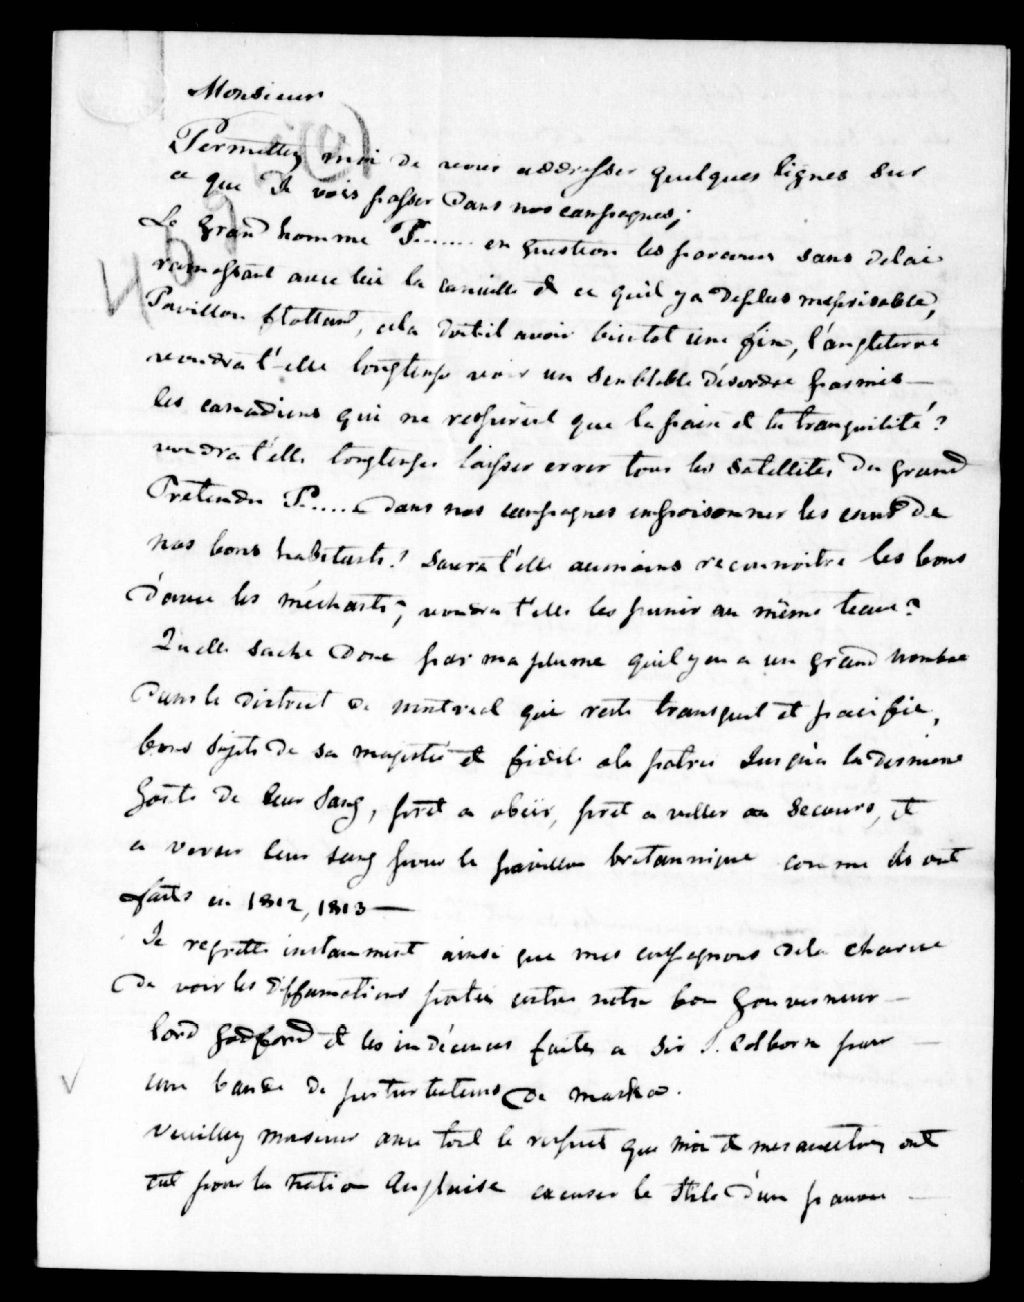 Monsieur
Permettez moi de venir addresser quelques lignes sur
ce que Je vois passer dans nos campagnes;
Le grand homme P...... en question les parcours sans delai
ramassant avec lui la canaille et ce quil y a desplus meprisable,
Pavillon flottand, cela doitil avoir bientot une fin, l'angleterre
voudra t'elle longtemps voir un semblable désordre parmis
les canadiens qui ne respirent que la paix et la tranquilité?
voudra t'elle longtemps laisser errer tous les satellites du grand
Pretendu P...... dans nos campagnes empoisonner les cœurs de
nos bons habitants? Saura t'elle aumoins reconnoitre les bons
d'avec les méchants, voudra t'elle les punir au même temp?
Qu'elle sache donc par ma plume quil y en a un grand nombre
dans le district de montreal qui reste tranquil et pacific,
bons sujets de sa majestée et fidel a la patrie Jusqua la derniere
goutte de leur sang, prêt a obéir, prêt a voller au secours, et
a verser leur sang pour le pavillon britannique comme ils ont
faits en 1812, 1813 —
Je regrette instamment ainsi que mes compagnons de la charue
de voir les diffamations portées contre notre bon gouverneur
lord gosford et les indécences faites a Sir J. Colborn par
une bande de perturbateurs de maska.
veuillez monsieur avec tout le respect que moi et mes ancetres ont
eut pour la nation Anglaise excuser le stile d'un pauvre